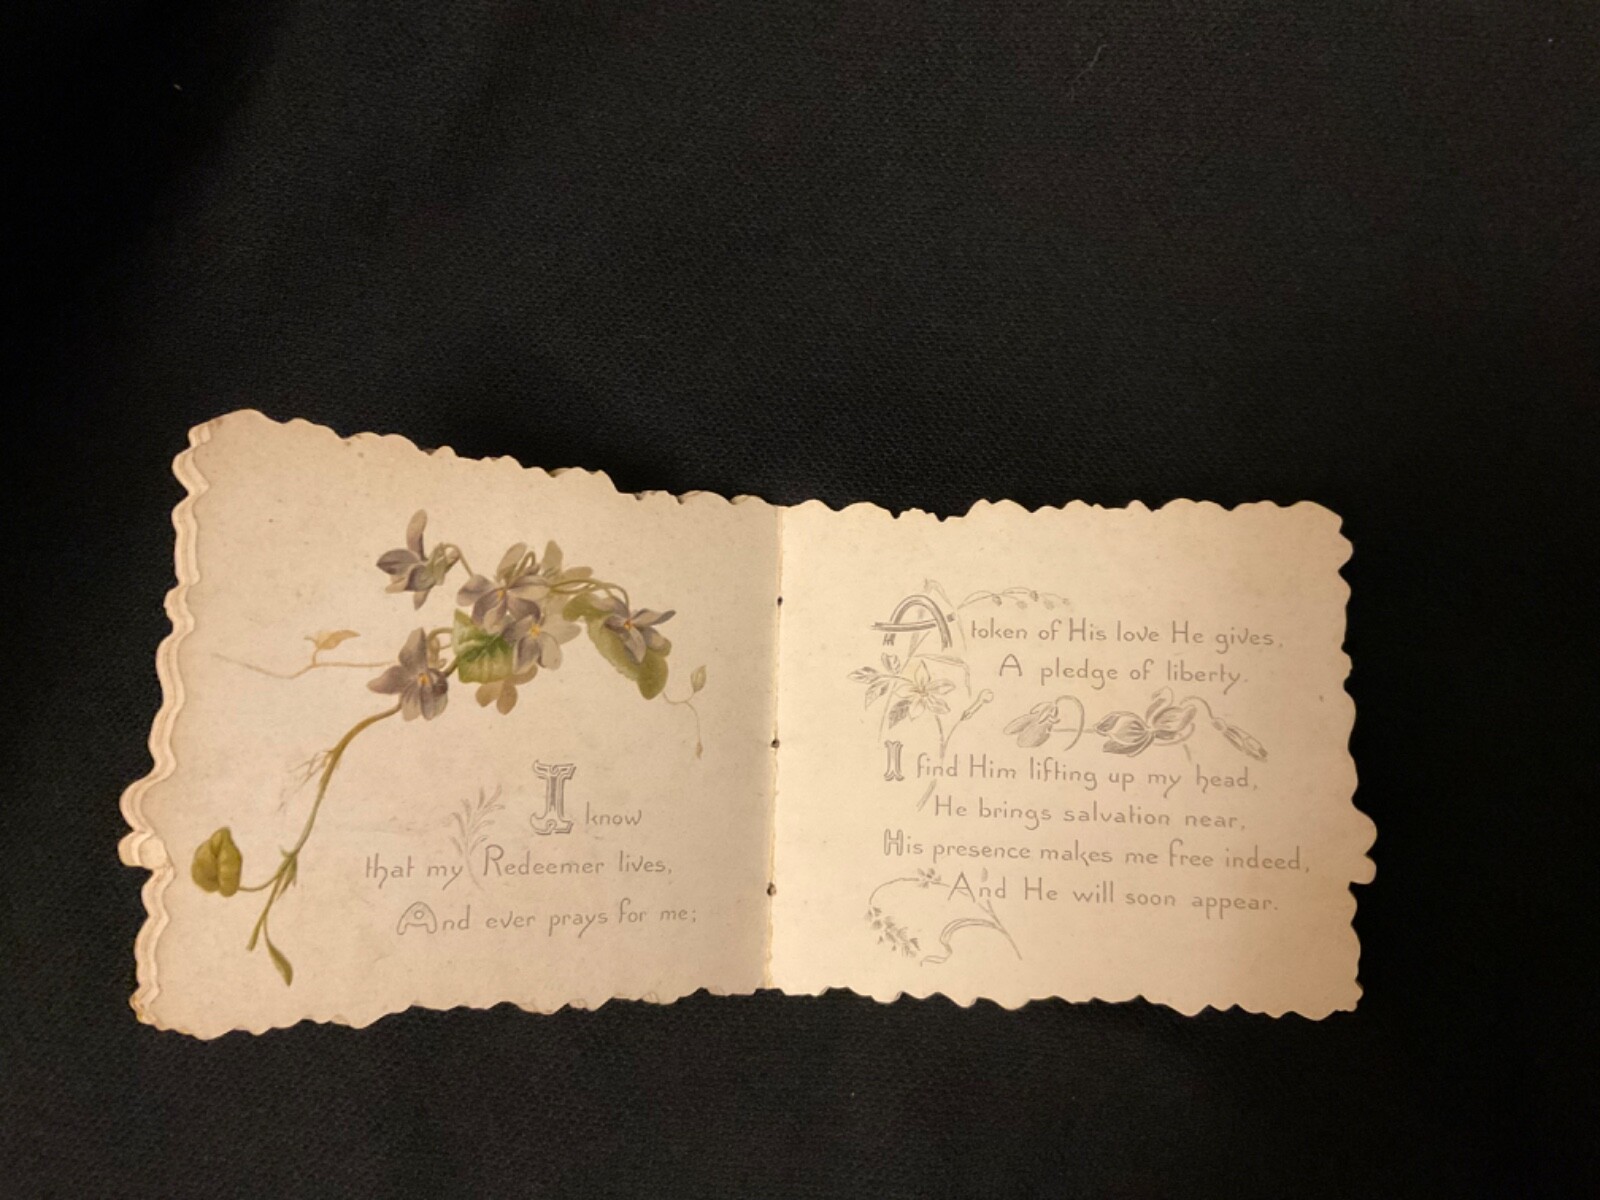 I know
that my Redeemer lives,
And ever prays for me;
A token of His love He gives,
A pledge of liberty.
I find Him lifting up my head,
He brings salvation near,
His presence makes me free indeed,
And He will soon appear.